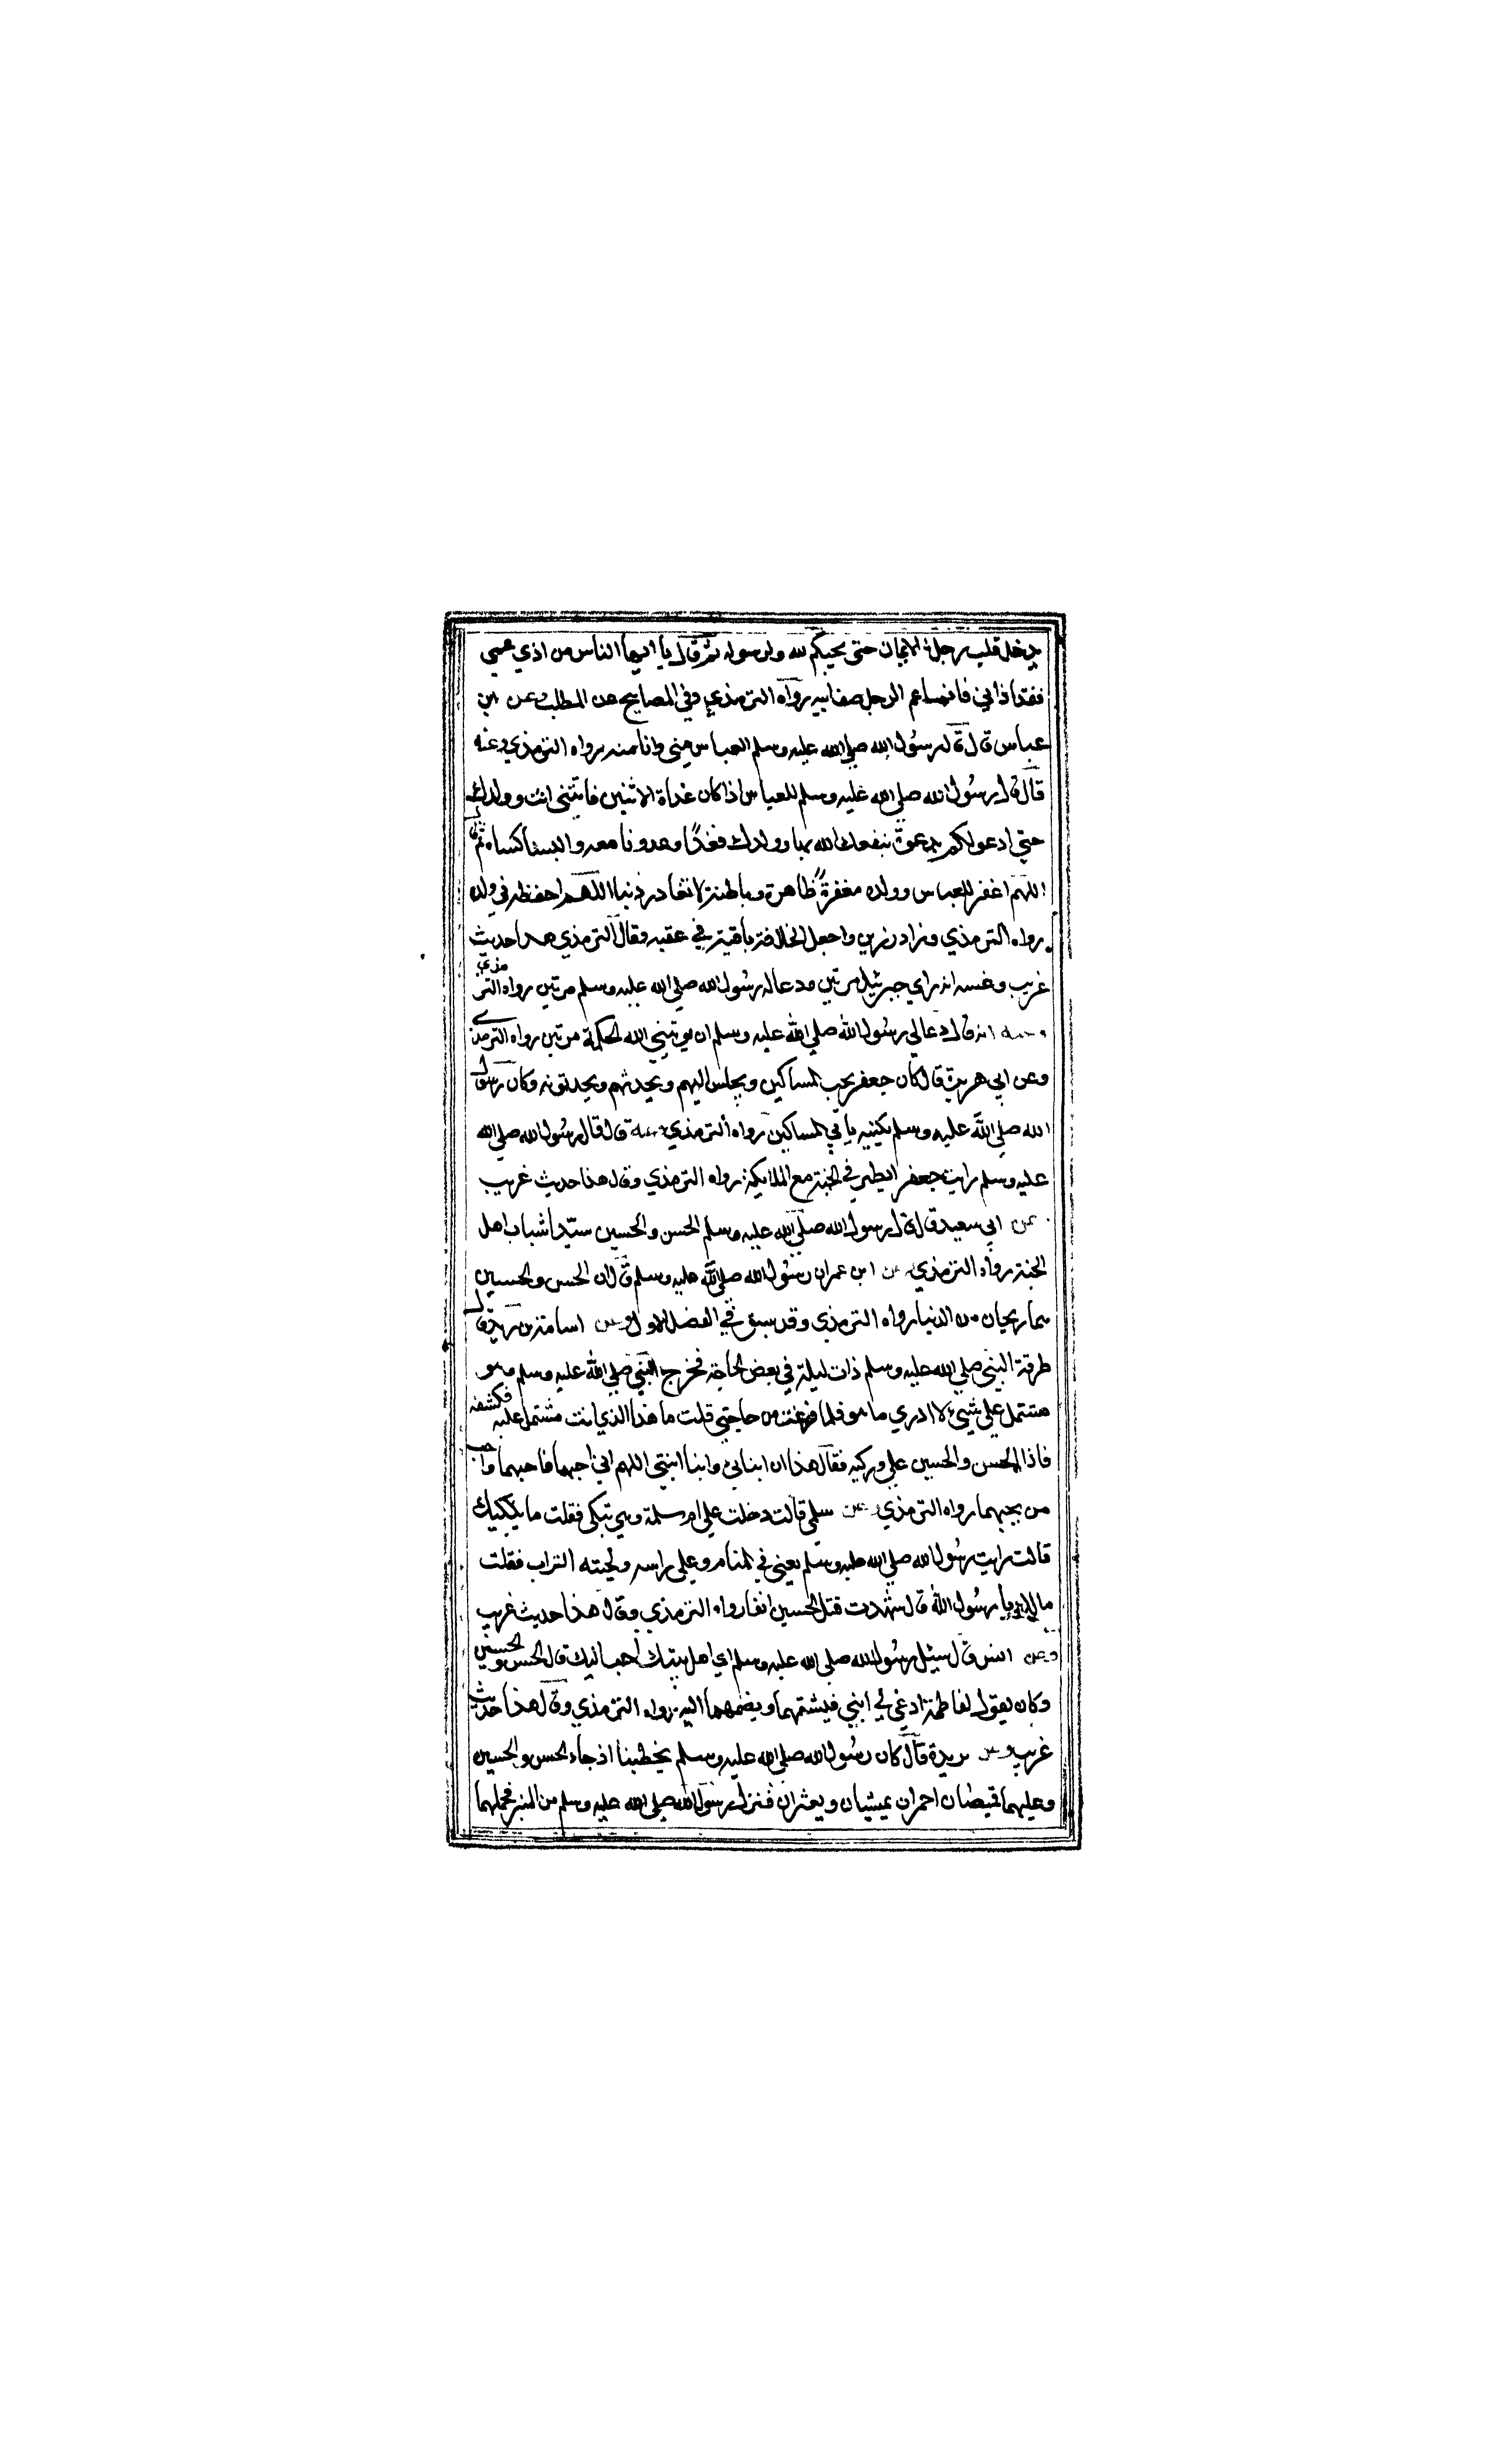 يدخل قلب رجل الايمان حتى يحبكم لله ولرسوله ثم قال يا ايها الناس من اذي عمي
فقد اذاني فانما عم الرجل صنو ابيه رواه الترمذي وفي المصابيح عن المطلب وعن ابن
عباس قال قال رسول الله صلي الله عليه وسلم العباس مني وانا منه رواه الترمذي وعنه
قال قال رسول الله صلي الله عليه وسلم للعباس اذا كان غداة الاثنين فاتني انت وولدك
حتي ادعو لكم بدعوة ينفعك الله بها وولدك فغدا وغدونا معه والبسنا كساه ثم قال
اللهم اغفر للعباس وولده مغفرة ظاهرة وباطنة لا تغادر ذنبا اللهم احفظه في ولده
رواه الترمذي وزاد رزين واجعل الخلافة باقية في عقبه وقال الترمذي هذا حديث
غريب وعنه انه راي جبرئيل مرتين ودعا له رسول الله صلي الله عليه وسلم مرتين رواه الترمذي
وعنه انه قال دعا لي رسول الله صلي الله عليه وسلم ان يوتيني الله الحكمة مرتين رواه الترمذي
وعن ابي هريرة قال كان جعفر يحب المساكين ويجلس اليهم ويحدثهم ويحدثونه وكان رسول
الله صلي الله عليه وسلم يكنيه بابي المساكين رواه الترمذي وعنه قال قال رسول الله صلي الله
عليه وسلم رايت جعفر يطير في الجنة مع الملايكة رواه الترمذي وقال هذا حديث غريب
وعن ابي سعيد قال قال رسول الله صلي الله عليه وسلم الحسن والحسين سيدا شباب اهل
الجنة رواه الترمذي وعن ابن عمر ان رسول الله صلي الله عليه وسلم قال ان الحسن والحسين
هما ريحان من الدنيا رواه الترمذي وقد سبق في الفصل الاول وعن اسامة بن زيد قال
طرقت النبي صلي الله عليه وسلم ذات ليلة في بعض الحاجة فخرج النبي صلي الله عليه وسلم وهو
مشتمل علي شيئ لا ادري ما هو فلما فرغت من حاجتي قلت ما هذا الذي انت مشتمل عليه فكشفه
فاذا الحسن والحسين علي وركيه فقال هذان ابناي وابنا ابنتي اللهم اني احبهما فاحبهما واحب
من يحبهما رواه الترمذي وعن سلمي قالت دخلت علي ام سلمة وهي تبكي فقلت ما يبكيك
قالت رايت رسول الله صلي الله عليه وسلم يعني في المنام وعلي راسه ولحيته التراب فقلت
مالك يا رسول الله قال شهدت قتل الحسين انفا رواه الترمذي وقال هذا حديث غريب
وعن انس قال سئل رسول الله صلي الله عليه وسلم اي اهل بيتك احب اليك قال الحسن والحسين
وكان يقول لفاطمة ادعي لي ابني فيشمهما ويضمهما اليه رواه الترمذي وقال هذا حديث
غريب وعن بريدة قال كان رسول الله صلي الله عليه وسلم يخطبنا اذ جاء الحسن والحسين
وعليهما قميصان احمران يمشيان ويعثران فنزل رسول الله صلي الله عليه وسلم من المنبر فحملهما